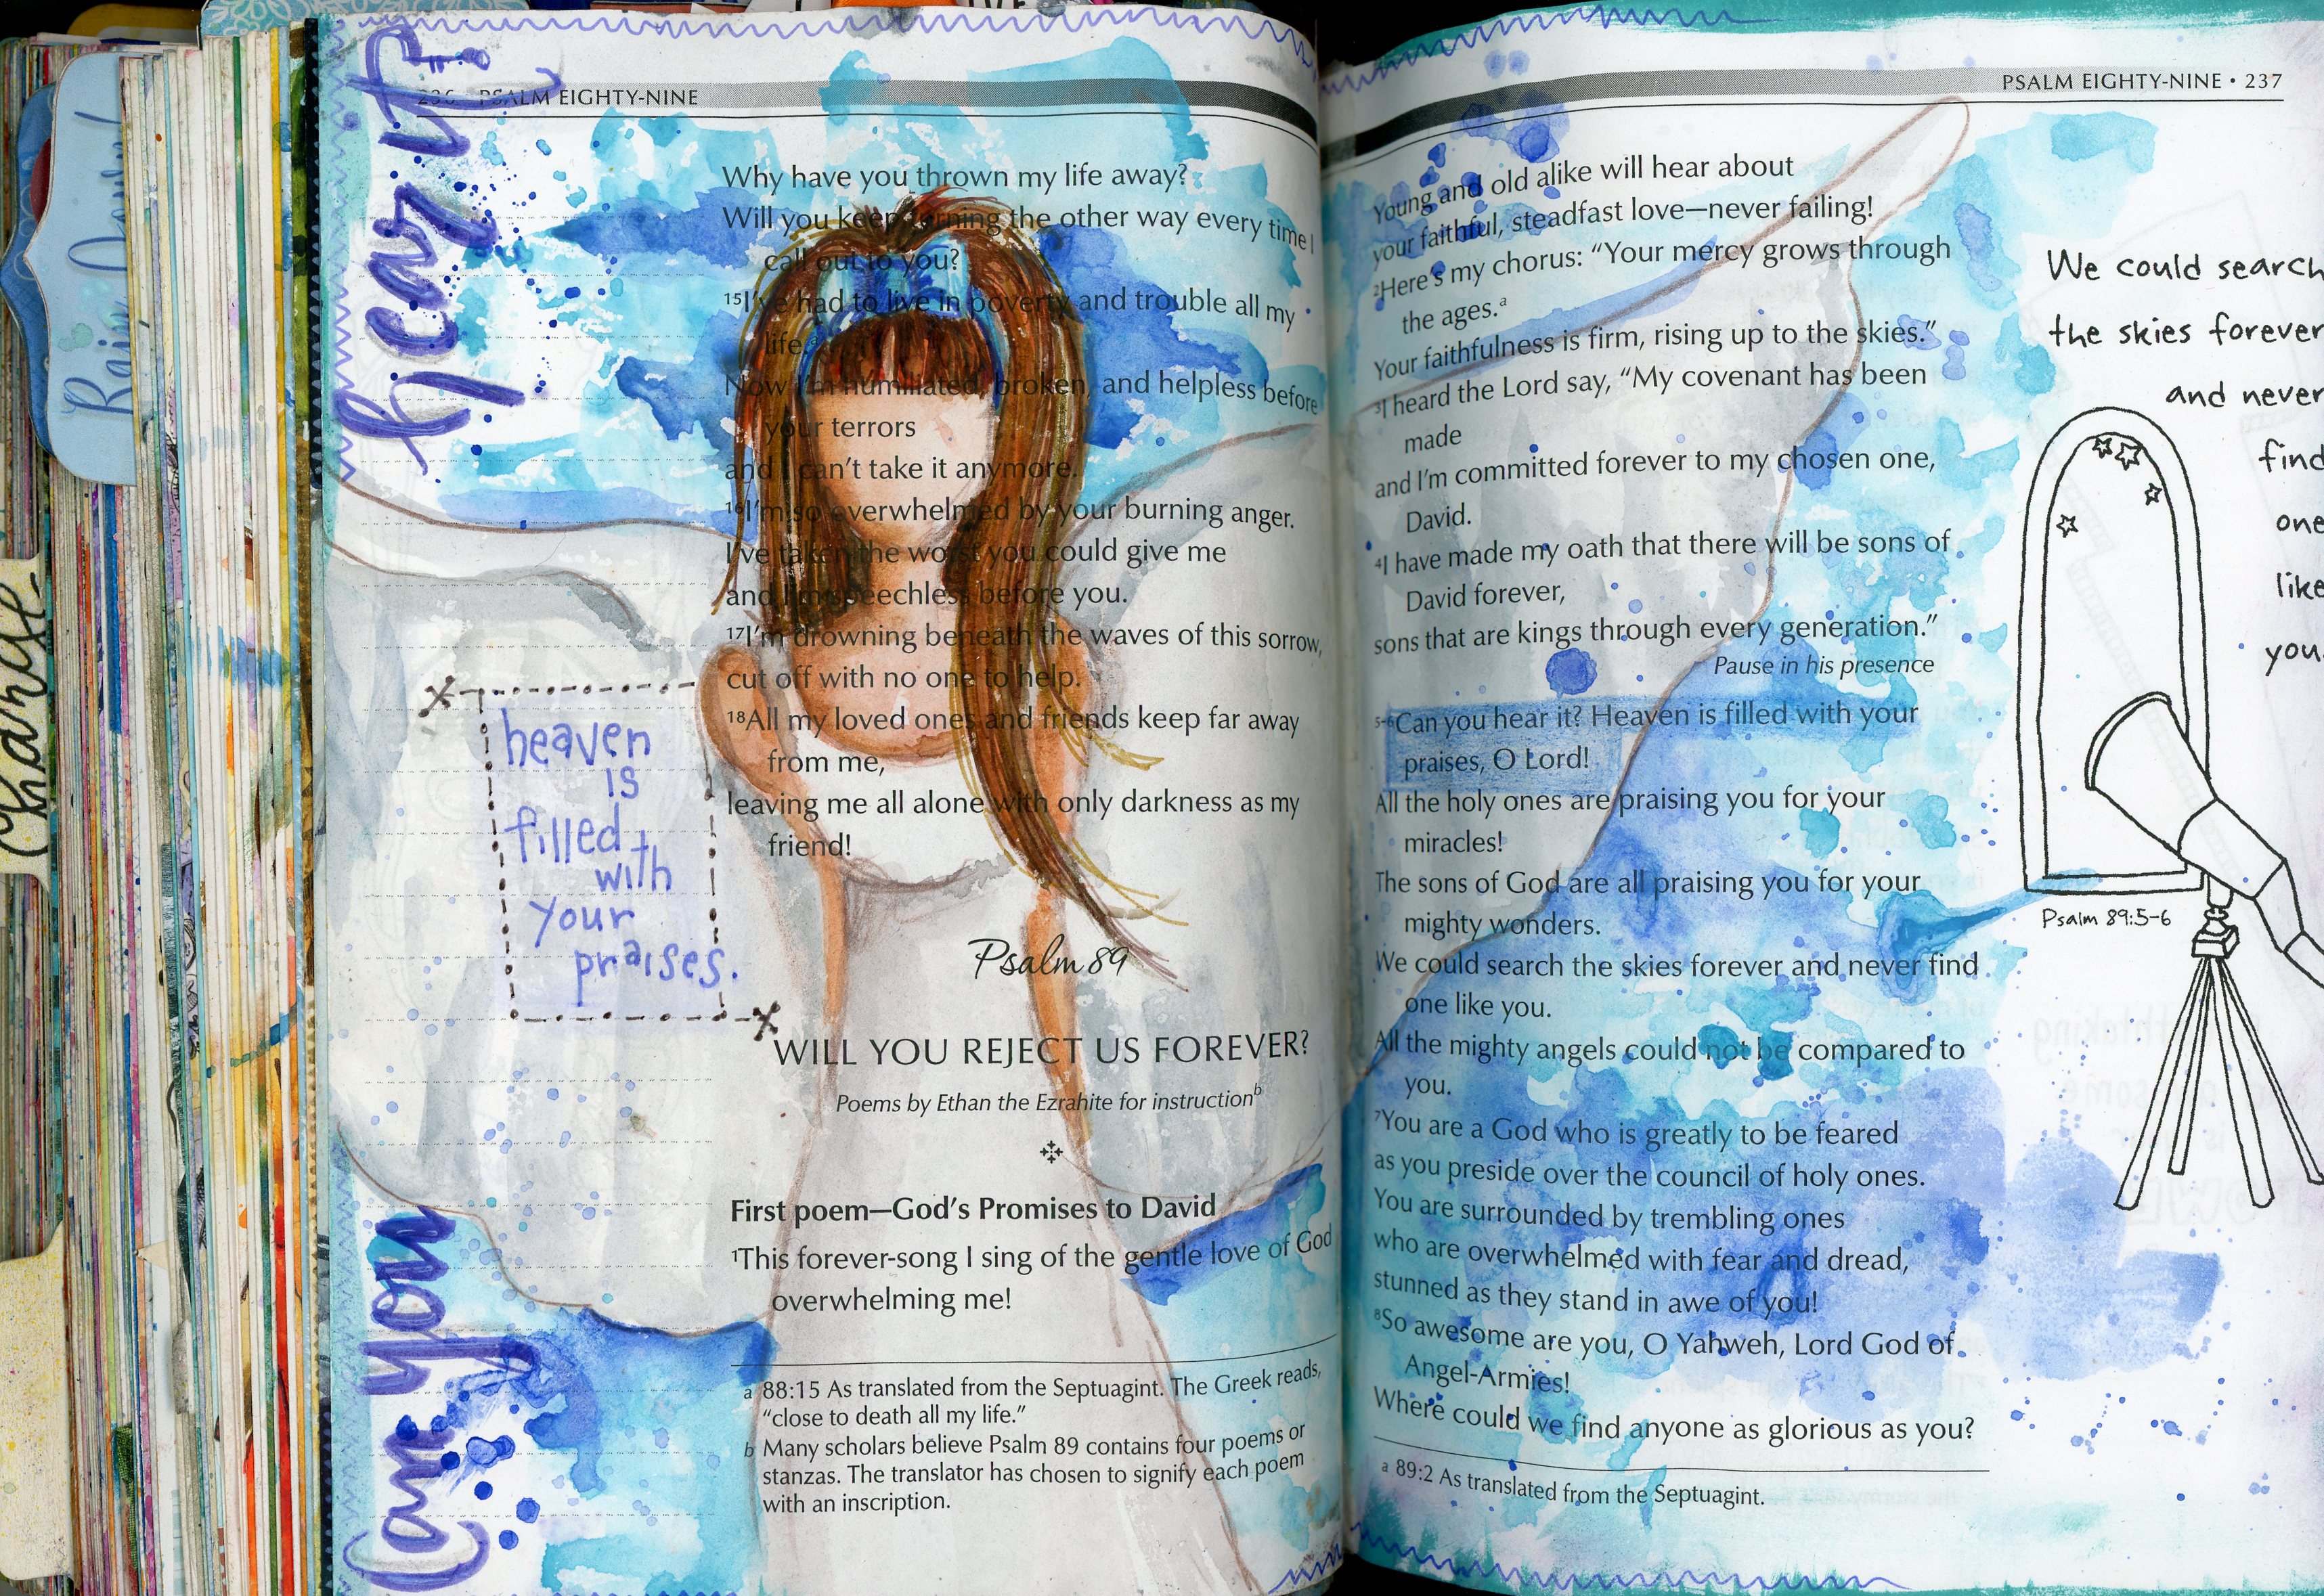 Rain Down!
Change
Can you hear it?
236 PSALM EIGHTY-NINE
Why have you thrown my life away?
Will you keep turning the other way every time I
call out to you?
15I've had to live in poverty and trouble all my
life.a
Now I'm humiliated, broken, and helpless before
your terrors
and I can't take it anymore.
16I'm so overwhelmed by your burning anger.
I've taken the worst you could give me
and I'm speechless before you.
17I'm drowning beneath the waves of this sorrow,
cut off with no one to help.
18All my loved ones and friends keep far away
from me,
leaving me all alone with only darkness as my
friend!
heaven
is
filled
with
your
praises.
Psalm 89
WILL YOU REJECT US FOREVER?
Poems by Ethan the Ezrahite for instructionb
First poem—God's Promises to David
1This forever-song I sing of the gentle love of God
overwhelming me!
a 88:15 As translated from the Septuagint. The Greek reads,
"close to death all my life."
b Many scholars believe Psalm 89 contains four poems or
stanzas. The translator has chosen to signify each poem
with an inscription.
PSALM EIGHTY-NINE • 237
Young and old alike will hear about
your faithful, steadfast love—never failing!
2Here's my chorus: "Your mercy grows through
the ages.a
Your faithfulness is firm, rising up to the skies."
3I heard the Lord say, "My covenant has been
made
and I'm committed forever to my chosen one,
David.
4I have made my oath that there will be sons of
David forever,
sons that are kings through every generation."
Pause in his presence
5-6Can you hear it? Heaven is filled with your
praises, O Lord!
All the holy ones are praising you for your
miracles!
The sons of God are all praising you for your
mighty wonders.
We could search the skies forever and never find
one like you.
All the mighty angels could not be compared to
you.
7You are a God who is greatly to be feared
as you preside over the council of holy ones.
You are surrounded by trembling ones
who are overwhelmed with fear and dread,
stunned as they stand in awe of you!
8So awesome are you, O Yahweh, Lord God of
Angel-Armies!
Where could we find anyone as glorious as you?
a 89:2 As translated from the Septuagint.
We could search
the skies forever
and never
find
one
like
you.
Psalm 89:5-6